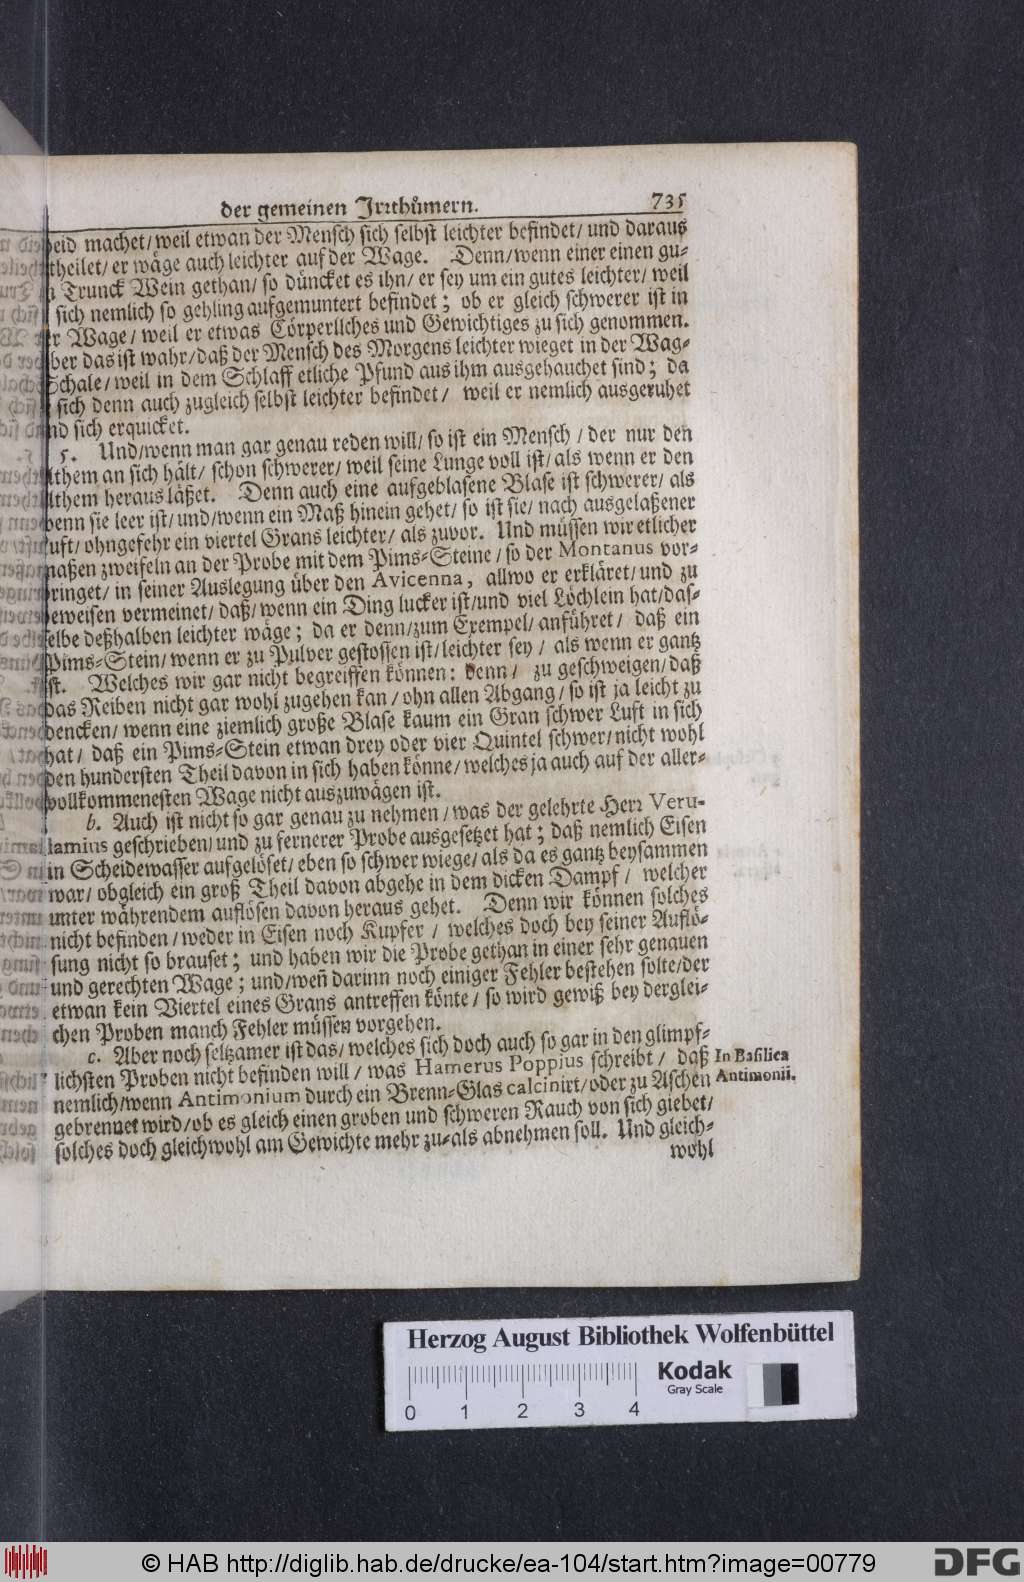 der gemeinen Jrrthůmern. 735
heid machet/ weil etwan der Mensch sich selbst leichter befindet/ und daraus
theilet/ er wäge auch leichter auf der Wage. Denn/ wenn einer einen gu-
Trunck Wein gethan/ so düncket es ihn/ er sey um ein gutes leichter/ weil
sich nemlich so gehling aufgemuntert befindet; ob er gleich schwerer ist in
Wage/ weil er etwas Cörperliches und Gewichtiges zu sich genommen.
ber das ist wahr/ daß der Mensch des Morgens leichter wieget in der Wag-
Schale/ weil in dem Schlaff etliche Pfund aus ihm ausgehauchet sind; da
sich denn auch zugleich selbst leichter befindet/ weil er nemlich ausgeruhet
nd sich erquicket.
5. Und/ wenn man gar genau reden will/ so ist ein Mensch/ der nur den
Athem an sich hält/ schon schwerer/ weil seine Lunge voll ist/ als wenn er den
Athem heraus läßet. Denn auch eine aufgeblasene Blase ist schwerer/ als
wenn sie leer ist/ und/ wenn ein Maß hinein gehet/ so ist sie/ nach ausgelaßener
uft/ ohngefehr ein viertel Grans leichter/ als zuvor. Und müssen wir etlicher
maßen zweifeln an der Probe mit dem Pims-Steine/ so der Montanus vor-
bringet/ in seiner Auslegung über den Avicenna, allwo er erkläret/ und zu
beweisen vermeinet/ daß/ wenn ein Ding lucker ist/ und viel Löchlein hat/ das-
selbe deßhalben leichter wäge; da er denn/ zum Exempel/ anführet/ daß ein
Pims-Stein/ wenn er zu Pulver gestossen ist/ leichter sey/ als wenn er gantz
ist. Welches wir gar nicht begreiffen können: denn/ zu geschweigen/ daß
das Reiben nicht gar wohl zugehen kan/ ohn allen Abgang/ so ist ja leicht zu
dencken/ wenn eine ziemlich große Blase kaum ein Gran schwer Luft in sich
hat/ daß ein Pims-Stein etwan drey oder vier Quintel schwer/ nicht wohl
den hundersten Theil davon in sich haben könne/ welches ja auch auf der aller-
vollkommenesten Wage nicht auszuwägen ist.
b. Auch ist nicht so gar genau zu nehmen/ was der gelehrte Herr Veru-
lamius geschrieben/ und zu fernerer Probe ausgesetzet hat; daß nemlich Eisen
in Scheidewasser aufgelöset/ eben so schwer wiege/ als da es gantz beysammen
war/ obgleich ein groß Theil davon abgehe in dem dicken Dampf/ welcher
unter währendem auflösen davon heraus gehet. Denn wir können solches
nicht befinden/ weder in Eisen noch Kupfer/ welches doch bey seiner Auflö-
sung nicht so brauset; und haben wir die Probe gethan in einer sehr genauen
und gerechten Wage; und/ weñ darinn noch einiger Fehler bestehen solte/ der
etwan kein Viertel eines Grans antreffen könte/ so wird gewiß bey derglei-
chen Proben manch Fehler müssen vorgehen.
c. Aber noch seltzamer ist das/ welches sich doch auch so gar in den glimpf-
lichsten Proben nicht befinden will/ was Hamerus Poppius schreibt/ daß
nemlich/ wenn Antimonium durch ein Brenn-Glas calcinirt/ oder zu Aschen
gebrennet wird/ ob es gleich einen groben und schweren Rauch von sich giebet/
solches doch gleichwohl am Gewichte mehr zu-als abnehmen soll. Und gleich-
wohl
In Basilica
Antimonii.
Herzog August Bibliothek Wolfenbüttel
Kodak
Gray Scale
0 1 2 3 4
© HAB http://diglib.hab.de/drucke/ea-104/start.htm?image=00779
DFG